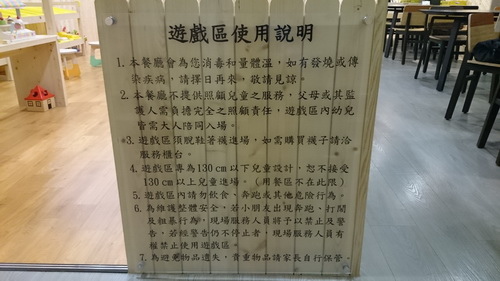 遊戲區使用說明
1. 本餐廳會為您消毒和量體溫，如有發燒或傳
染疾病，請擇日再來，敬請見諒。
2. 本餐廳不提供照顧兒童之服務，父母或其監
護人需負擔完全之照顧責任，遊戲區內幼兒
皆需大人陪同入場。
*3. 遊戲區須脫鞋著襪進場，如需購買襪子請洽
服務櫃台。
4. 遊戲區專為130cm以下兒童設計，恕不接受
130cm以上兒童進場。(用餐區不在此限)
5. 遊戲區內請勿飲食、奔跑或其他危險行為。
6. 為維護整體安全，若小朋友出現奔跑、打鬧
及粗暴行為，現場服務人員將予以禁止及警
告，若經警告仍不停止者，現場服務人員有
權禁止使用遊戲區。
7. 為避免物品遺失，貴重物品請家長自行保管。